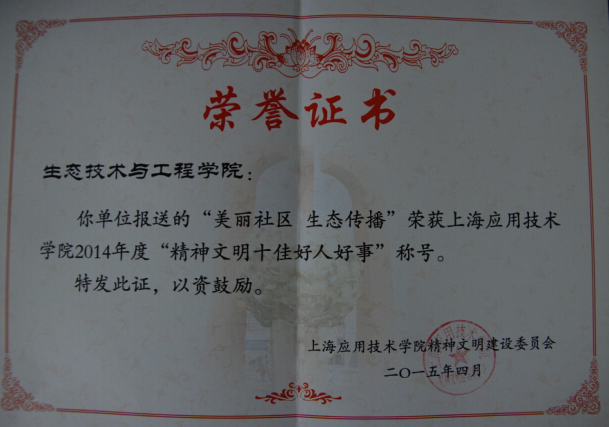 荣誉证书
生态技术与工程学院：
你单位报送的“美丽社区 生态传播”荣获上海应用技术
学院2014年度“精神文明十佳好人好事”称号。
特发此证，以资鼓励。
上海应用技术学院精神文明建设委员会
二〇一五年四月